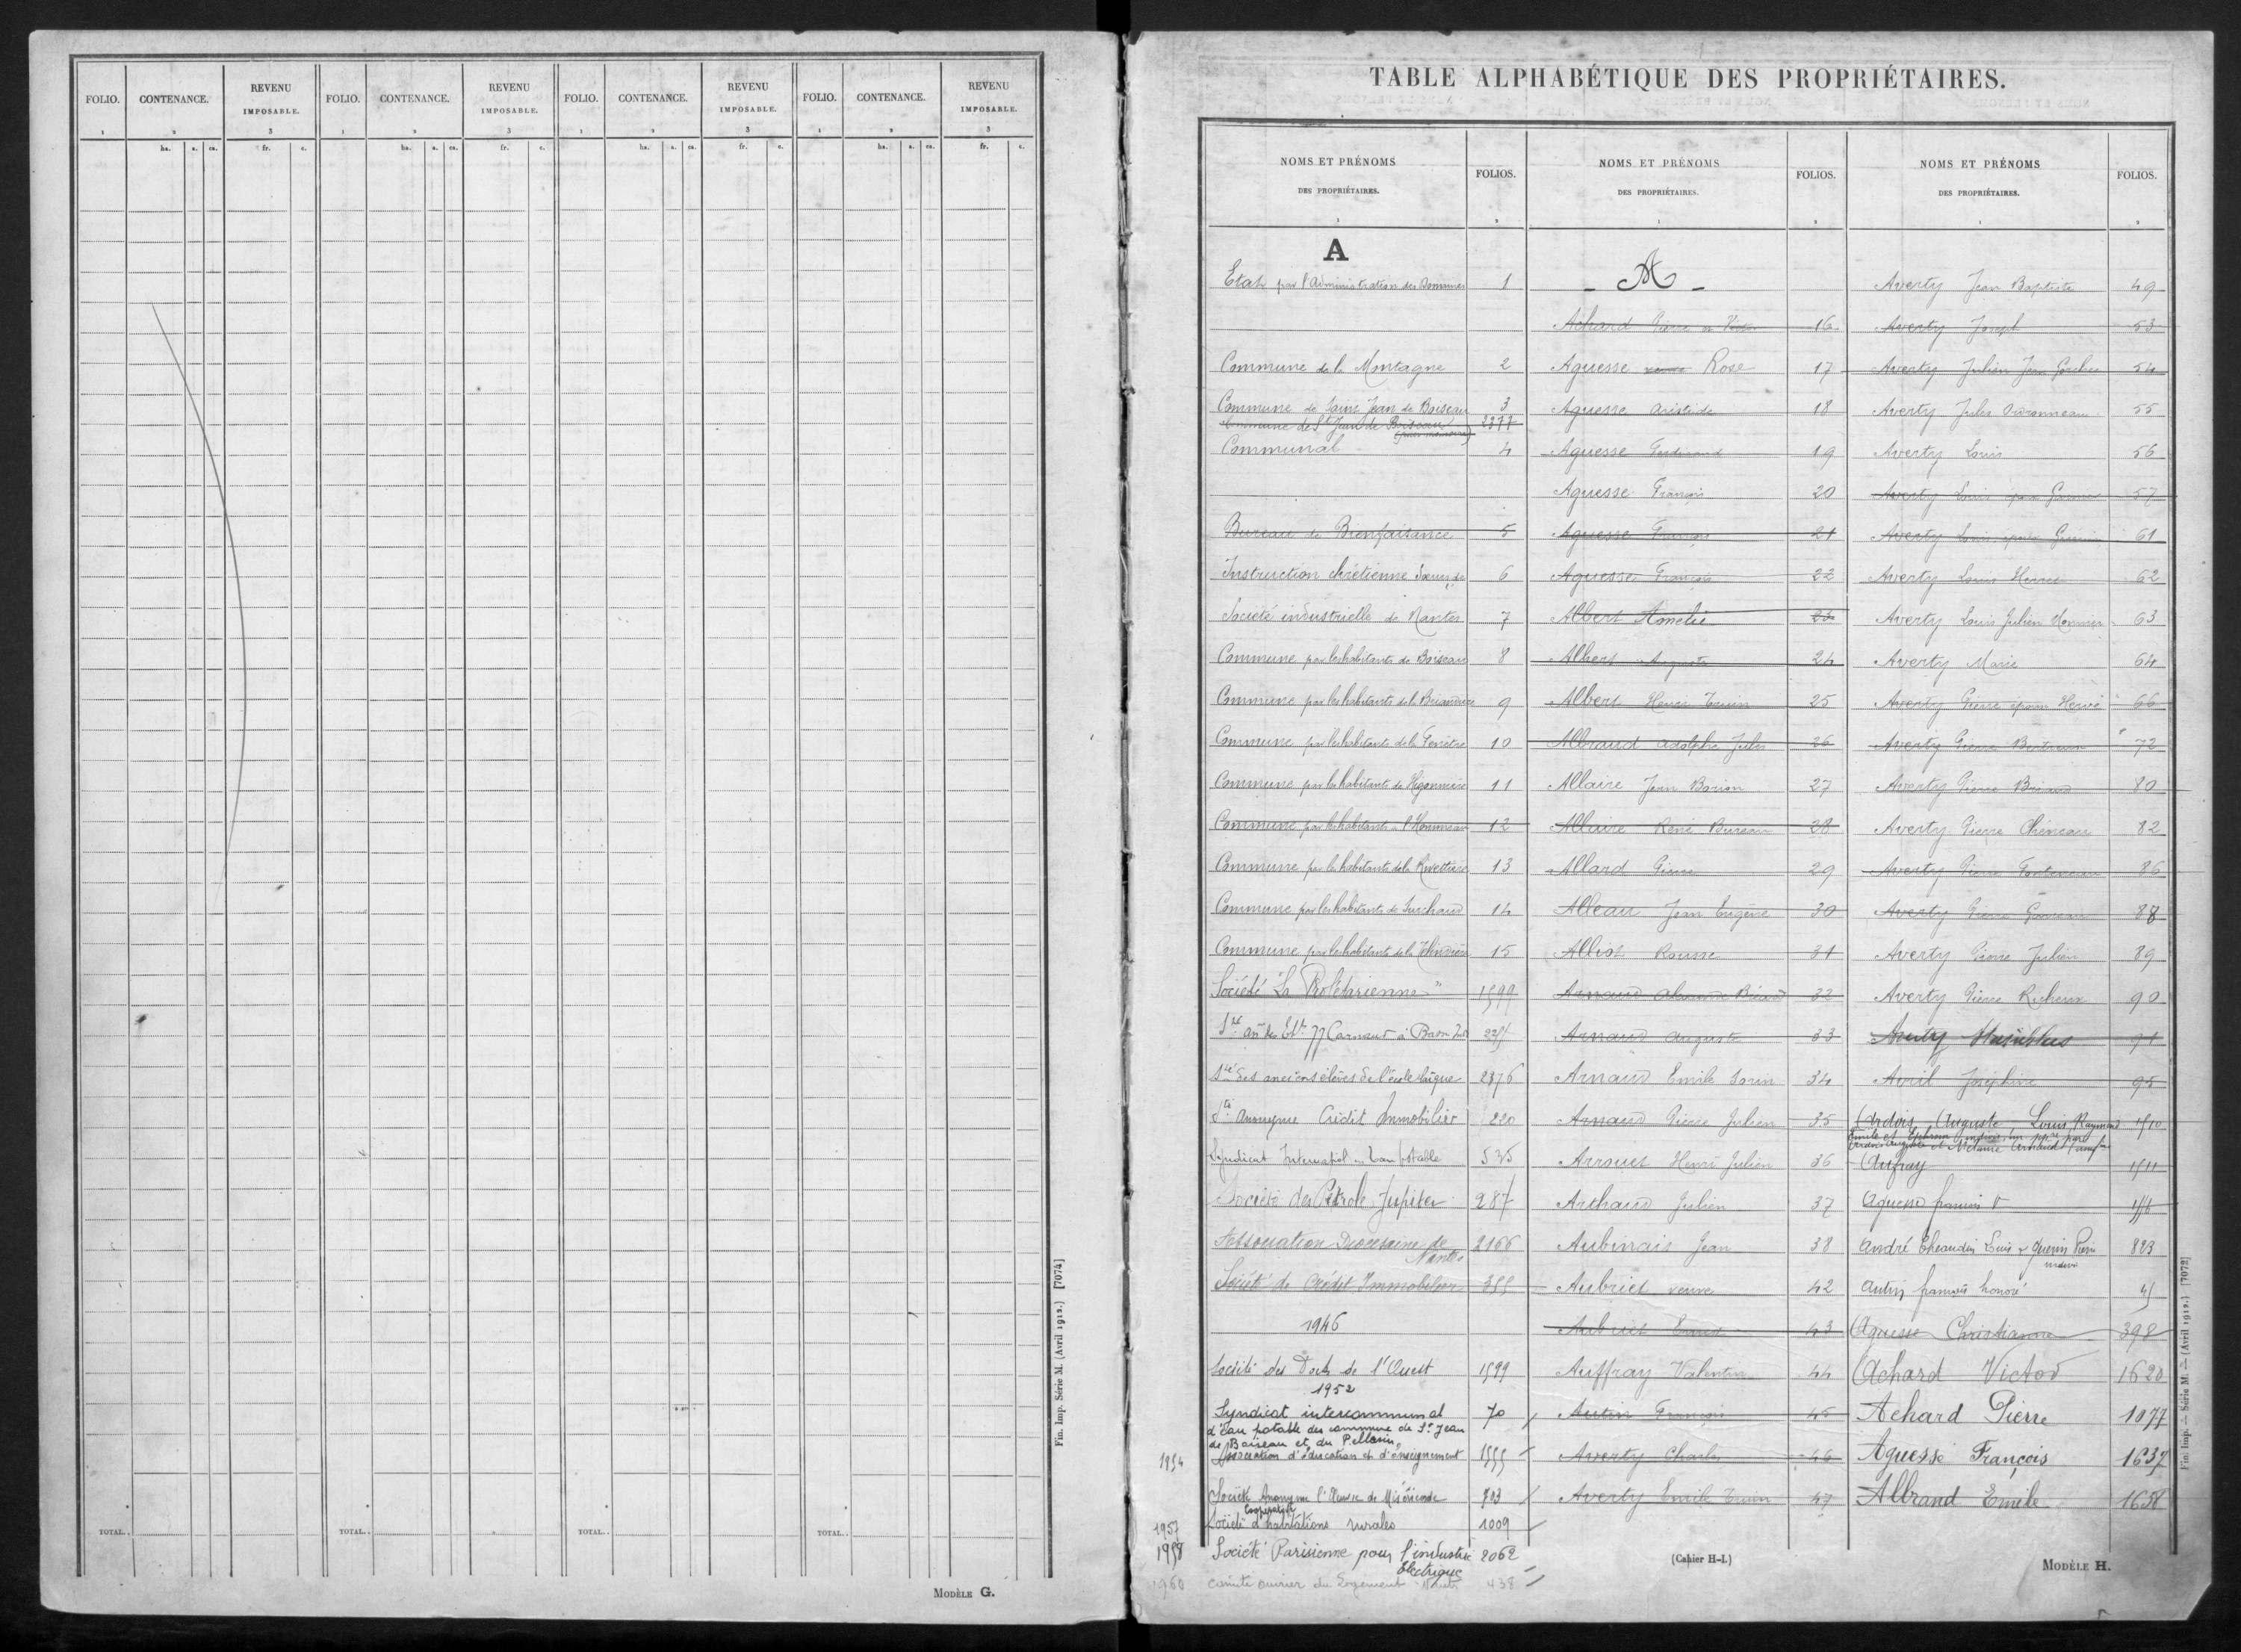 FOLIO. CONTENANCE. REVENU IMPOSABLE. FOLIO. CONTENANCE. REVENU IMPOSABLE. FOLIO. CONTENANCE. REVENU IMPOSABLE. FOLIO. CONTENANCE. REVENU IMPOSABLE.
1 2 3 1 2 3 1 2 3 1 2 3
ha. a. ca. fr. c. ha. a. ca. fr. c. ha. a. ca. fr. c. ha. a. ca. fr. c.
TOTAL.. TOTAL.. TOTAL.. TOTAL..
Fin. Imp. Série M. (Avril 1912.) [7074]
MODÈLE G.
TABLE ALPHABÉTIQUE DES PROPRIÉTAIRES.
NOMS ET PRÉNOMS
DES PROPRIÉTAIRES.
1
FOLIOS.
2
A
Etat par l'Administration des Domaines 1
Commune de la Montagne 2
Commune de Saint Jean de Boiseau 3
Commune de St Jean de Boiseau 2377
Communal 4
Bureau de Bienfaisance 5
Instruction chrétienne Soeurs de 6
Société industrielle de Nantes 7
Commune par les habitants de Boiseau 8
Commune par les habitants de la 9
Commune par les habitants de la 10
Commune par les habitants de 11
Commune par les habitants 12
Commune par les habitants de la 13
Commune par les habitants de 14
Commune par les habitants de la 15
Société "La Prolétarienne" 1599
Sté an. des Ets JJ Carnaud à Basse Indre
Sté des anciens élèves de l'école laïque 2376
Sté Anonyme Crédit Immobilier 220
Syndicat Eau potable 535
Société des Pétrole Jupiter 287
Association Diocésaine de Nantes 2166
Société de Crédit Immobilier 355
1946
Société des Dock de l'Ouest 1599
1952
Syndicat intercommunal 70
d'eau potable des commune de St Jean
de Boiseau et du Pellerin
1954 Association d'éducation et d'enseignement 1555
Société Anonyme l'Oeuvre de Miséricorde 703
1957 Société coopérative d'habitations rurales 1009
1958 Société Parisienne pour l'industrie Electrique 2062
1960 comité ouvrier du Logement 438
NOMS ET PRÉNOMS
DES PROPRIÉTAIRES.
1
FOLIOS.
2
- A -
Achard Pierre 16
Aguesse Rose 17
Aguesse Aristide 18
Aguesse Ferdinand 19
Aguesse François 20
Aguesse François 21
Aguesse François 22
Albert Amélie 23
Albert Auguste 24
Albert Henri 25
Albrand Adolphe Jules 26
Allaire Jean 27
Allaire René Bureau 28
Allard Pierre 29
Alleau Jean Eugène 30
Alliot Rousse 31
Arnaud 32
Arnaud Auguste 33
Arnaud Emile Sorin 34
Arnaud Pierre Julien 35
Arrouet Henri Julien 36
Arthaud Julien 37
Aubinais Jean 38
Aubriet veuve 42
Aubriet 43
Auffray Valentin 44
Autin François 45
Averty Charles 46
Averty Emile 47
(Cahier H-L)
NOMS ET PRÉNOMS
DES PROPRIÉTAIRES.
1
FOLIOS.
2
Averty Jean Baptiste 49
Averty Joseph 53
Averty Julien Jean 54
Averty Jules 55
Averty Louis 56
Averty Louis époux 57
Averty Louis époux 61
Averty Louis Hervé 62
Averty Louis Julien 63
Averty Marie 64
Averty Pierre époux Hervé 66
Averty Pierre Bertreux 72
Averty Pierre 80
Averty Pierre 82
Averty Pierre 86
Averty Pierre 88
Averty Pierre Julien 89
Averty Pierre Richeux 90
Averty Stanislas 91
Avril Joséphine 95
Ardois Auguste Louis Raymond 1510
Aufray 1511
Aguesse françois
André 823
Autin françois honoré
Aguesse Christianne 398
Achard Victor 1620
Achard Pierre 1077
Aguesse François 1637
Albrand Emile 1658
MODÈLE H.
Fin. Imp. — Série M. — (Avril 1912.) [7072]